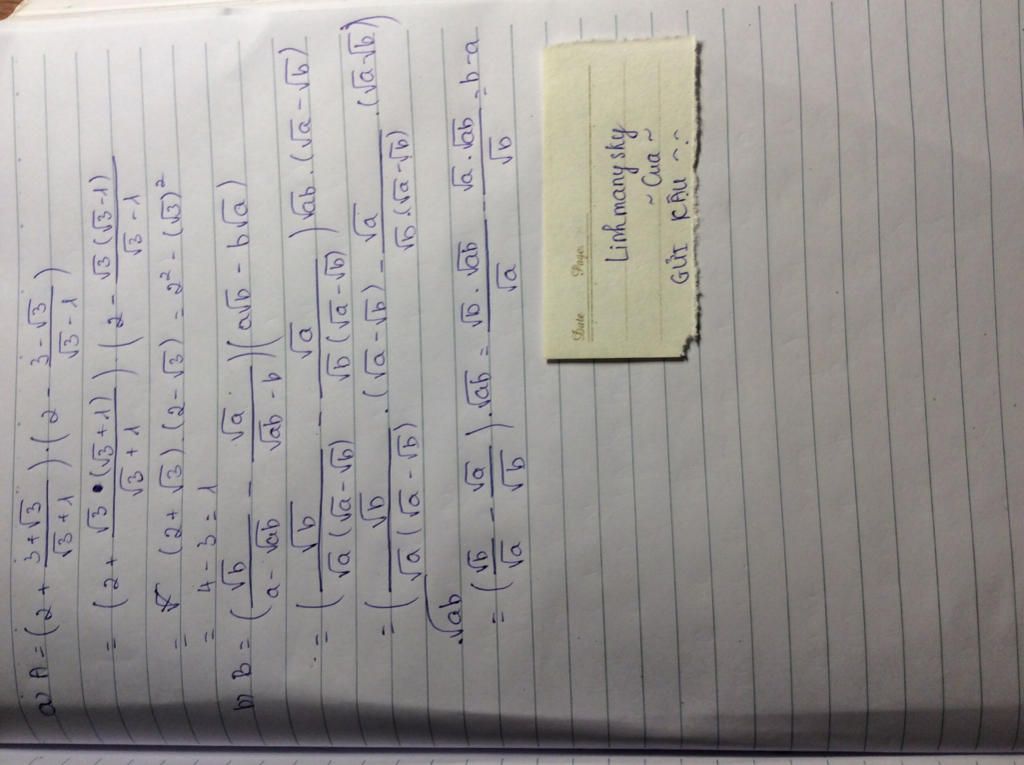 a) A = (2 + \frac{3+√3}{√3+1}).(2 - \frac{3-√3}{√3-1})
= (2 + \frac{√3.(√3+1)}{√3+1}).(2 - \frac{√3(√3-1)}{√3-1})
= (2+√3).(2-√3) = 2² - (√3)²
= 4 - 3 = 1
b) B = (\frac{√b}{a-√ab} - \frac{√a}{√ab-b})(a√b - b√a)
= (\frac{√b}{√a(√a-√b)} - \frac{√a}{√b(√a-√b)})√ab.(√a-√b)
= (\frac{√b}{√a(√a-√b)}.(√a-√b) - \frac{√a}{√b.(√a-√b)}.(√a-√b))
.√ab
= (\frac{√b}{√a} - \frac{√a}{√b}).√ab = \frac{√b.√ab}{√a} - \frac{√a.√ab}{√b} = b-a
Date Page
Linhmanysky
~ Cua ~
GỬI KẬU ^.^